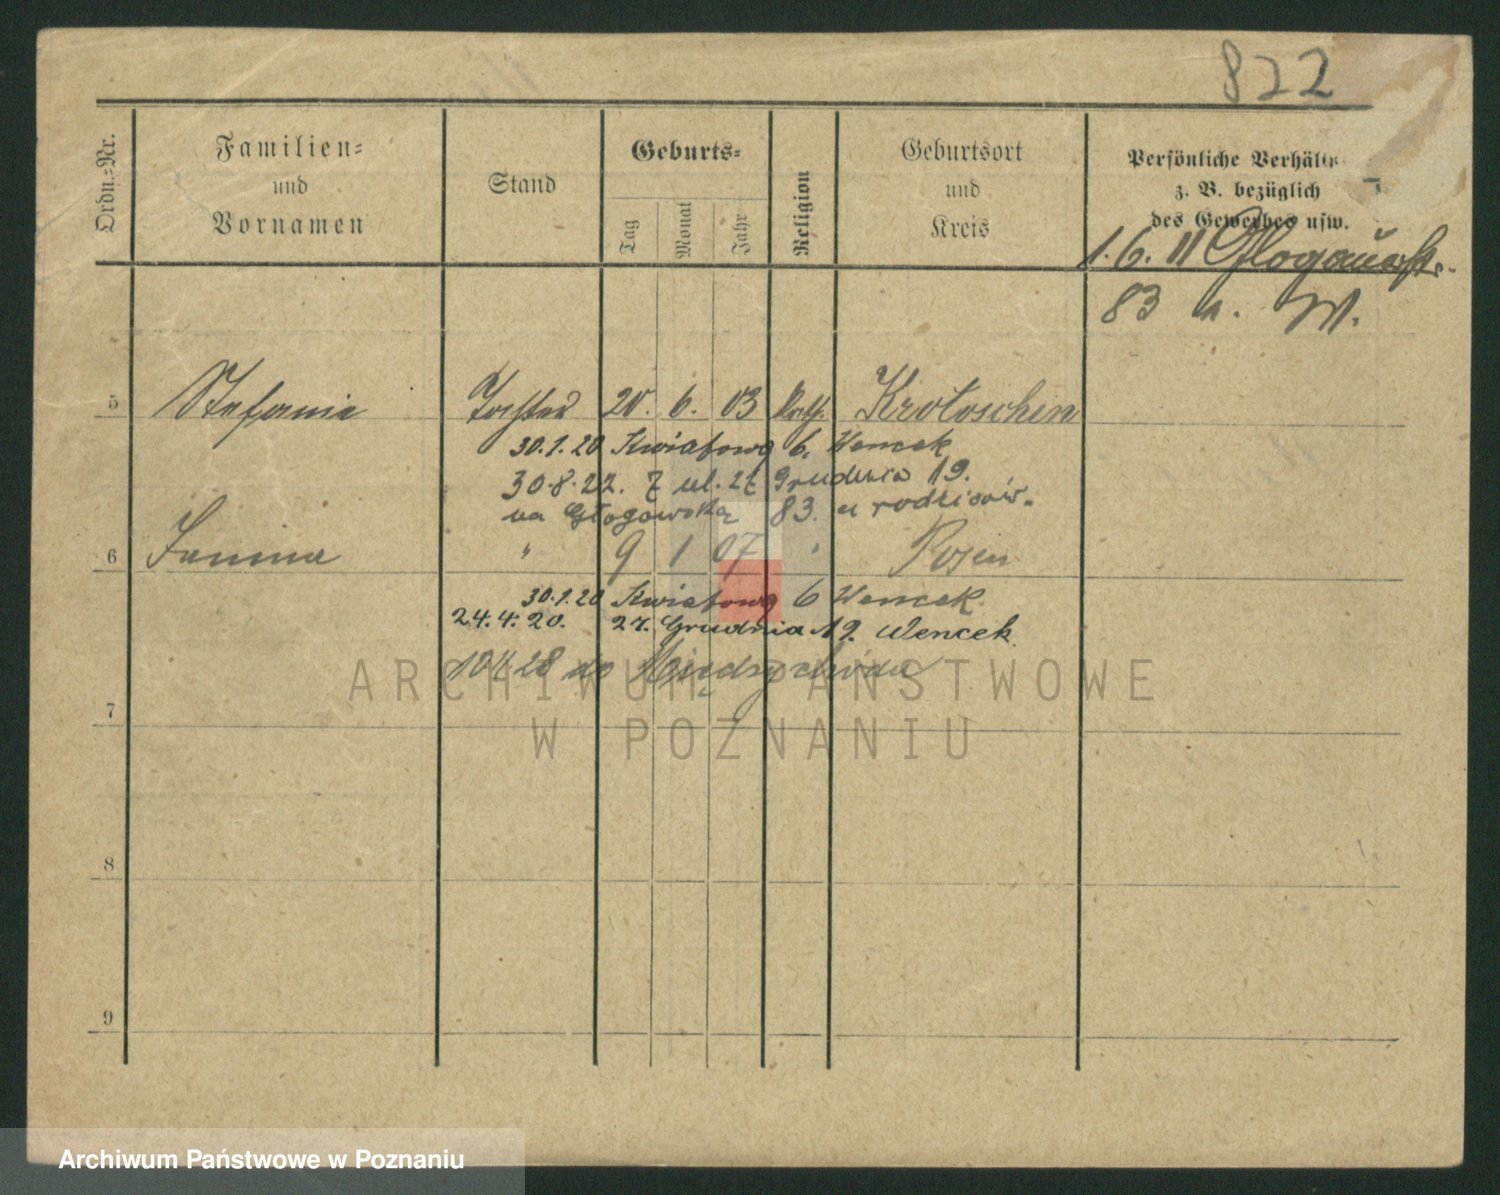 822
Ordn.-Nr.
Familien-
und
Vornamen
Stand
Geburts-
Tag
Monat
Jahr
Religion
Geburtsort
und
Kreis
Persönliche
z. B. bezüglich
des Gewerbes usw.
1. 6. 11 Glogauerstr.
83 W.
5 Stefanie Tochter 20. 6. 03 Kath. Krotoschin
30.1.20 Kwiatowa 6. Wencek
30.8.22. z ul. 27 Grudnia 19.
na Głogowską 83. u rodziców.
6 Janina " 9 1 07 " Posen
30.1.20 Kwiatowa 6 Wencek.
24.4.20. 27. Grudnia 19. Wencek.
28 do Międzychodu
7
8
9
ARCHIWUM PAŃSTWOWE
W POZNANIU
Archiwum Państwowe w Poznaniu